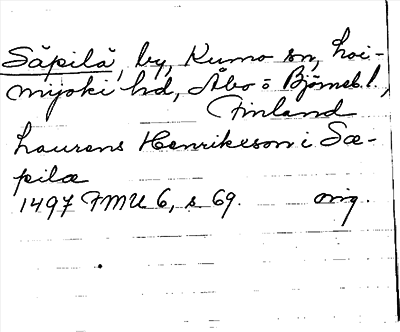 Säpilä, by, Kumo sn, Loi-
mijoki hd, Åbo o Björneb. l.,
Finland
Laurens Henrikesson i Sæ-
pilæ
1497 FMU 6, s 69. orig.